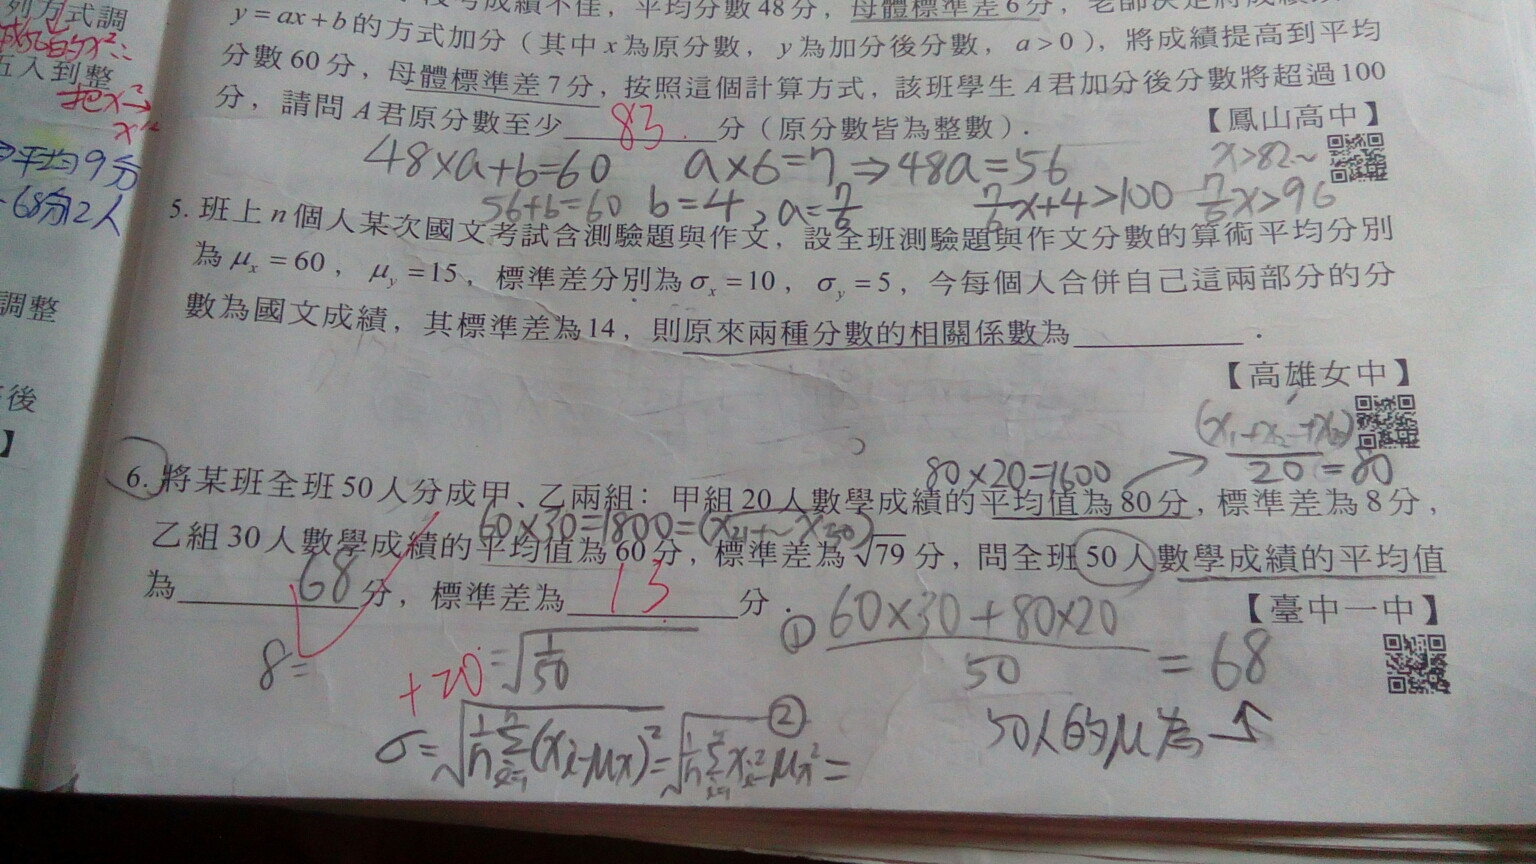 列方式調
平均分數48分，母體標準差6分，
y=ax+b的方式加分（其中x為原分數，y為加分後分數，a>0），將成績提高到平均
五入到整
把x²→
分數60分，母體標準差7分，按照這個計算方式，該班學生A君加分後分數將超過100
分，請問A君原分數至少 83 分（原分數皆為整數）．
【鳳山高中】
平均9分
68分2人
48×a+b=60 a×6=7⇒48a=56 x>82~
56+b=60 b=4，a=7/6 7/6x+4>100 7/6x>96
5. 班上n個人某次國文考試含測驗題與作文，設全班測驗題與作文分數的算術平均分別
為μx=60，μy=15，標準差分別為σx=10，σy=5，今每個人合併自己這兩部分的分
調整
數為國文成績，其標準差為14，則原來兩種分數的相關係數為 ．
【高雄女中】
後
】
80×20=1600 → =80
20
6. 將某班全班50人分成甲、乙兩組：甲組20人數學成績的平均值為80分，標準差為8分，
60×30=1800=(x21+~x50)
乙組30人數學成績的平均值為60分，標準差為√79分，問全班50人數學成績的平均值
為 68 分，標準差為 13 分．
【臺中一中】
① 60×30+80×20
50
=68
8=
+20
=√1/50
50人的μ為
②
σ=√1/n Σ(xi-μx)²=√1/n Σxi²-μx²=